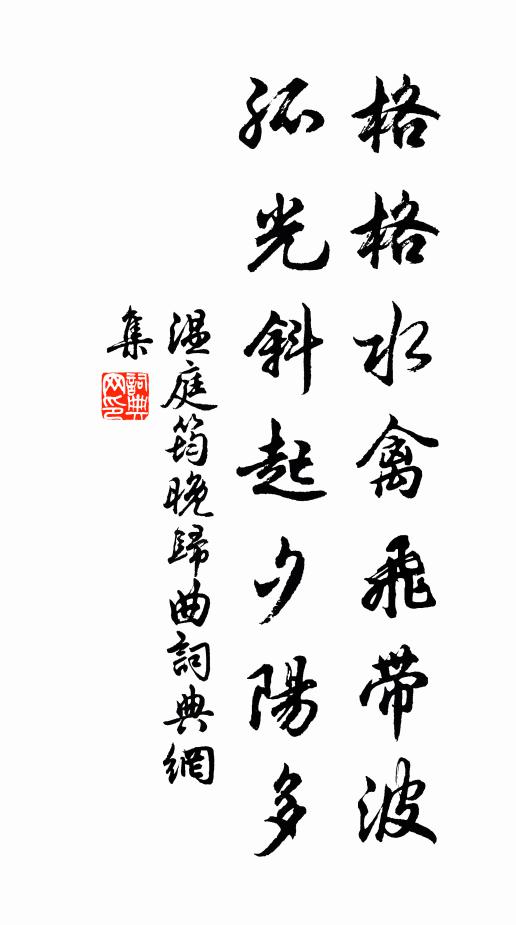 格格水禽飛帶波
孤光斜起夕陽多
温庭筠晚歸曲詞典網
集
詞典网印